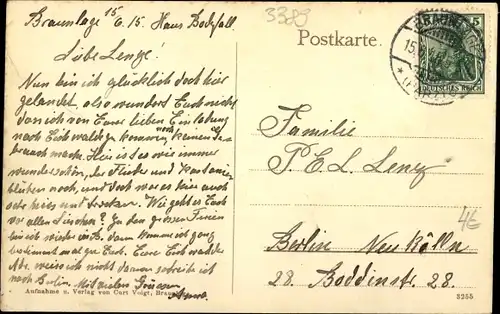 Braunlage 15/6.15. Haus Bodfall.
Liebe Lenze!
Nun bin ich glücklich doch hier
gelandet, also wundert Euch nicht
dass ich von Eurer lieben Einladung
noch keinen Ge-
brauch mache. Hier ist es wie immer
wunderschön, der Flieder und Kastanien
blühen noch, und doch war es hier auch
sehr heiss und trocken. Wie geht es Euch
vor allen Lieschen? Zu den grossen Ferien
bin ich wieder dann komme ich ganz
bestimmt mal zu Euch. Eure
weiss ich nicht darum schreibe ich
nach Berlin. Mit vielen Grüssen
Anna.
Aufnahme u. Verlag von Curt Voigt,
3383
Postkarte.
BRAUNLAGE
15.
* (HARZ)
5
DEUTSCHES REICH
Familie
P. E. L. Lenz
Berlin Neu Kölln
28. Boddinstr. 28.
4€
3255